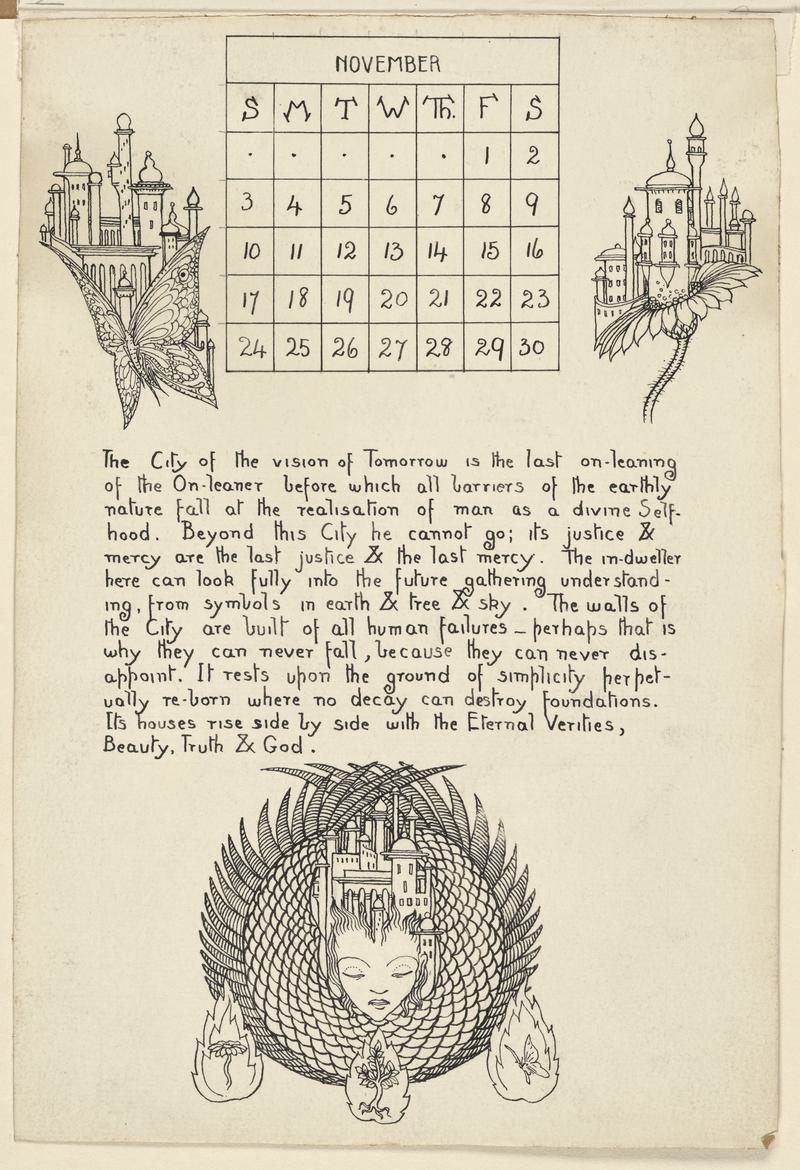 NOVEMBER
S M T W Th. F S
· · · · · 1 2
3 4 5 6 7 8 9
10 11 12 13 14 15 16
17 18 19 20 21 22 23
24 25 26 27 28 29 30
The City of the vision of Tomorrow is the last on-leaning
of the On-leaner before which all barriers of the earthly
nature fall at the realisation of man as a divine Self-
hood. Beyond this City he cannot go; its justice &
mercy are the last justice & the last mercy. The in-dweller
here can look fully into the future gathering understand-
ing, from symbols in earth & tree & sky. The walls of
the City are built of all human failures – perhaps that is
why they can never fall, because they can never dis-
appoint. It rests upon the ground of simplicity perpet-
ually re-born where no decay can destroy foundations.
Its houses rise side by side with the Eternal Verities,
Beauty, Truth & God.